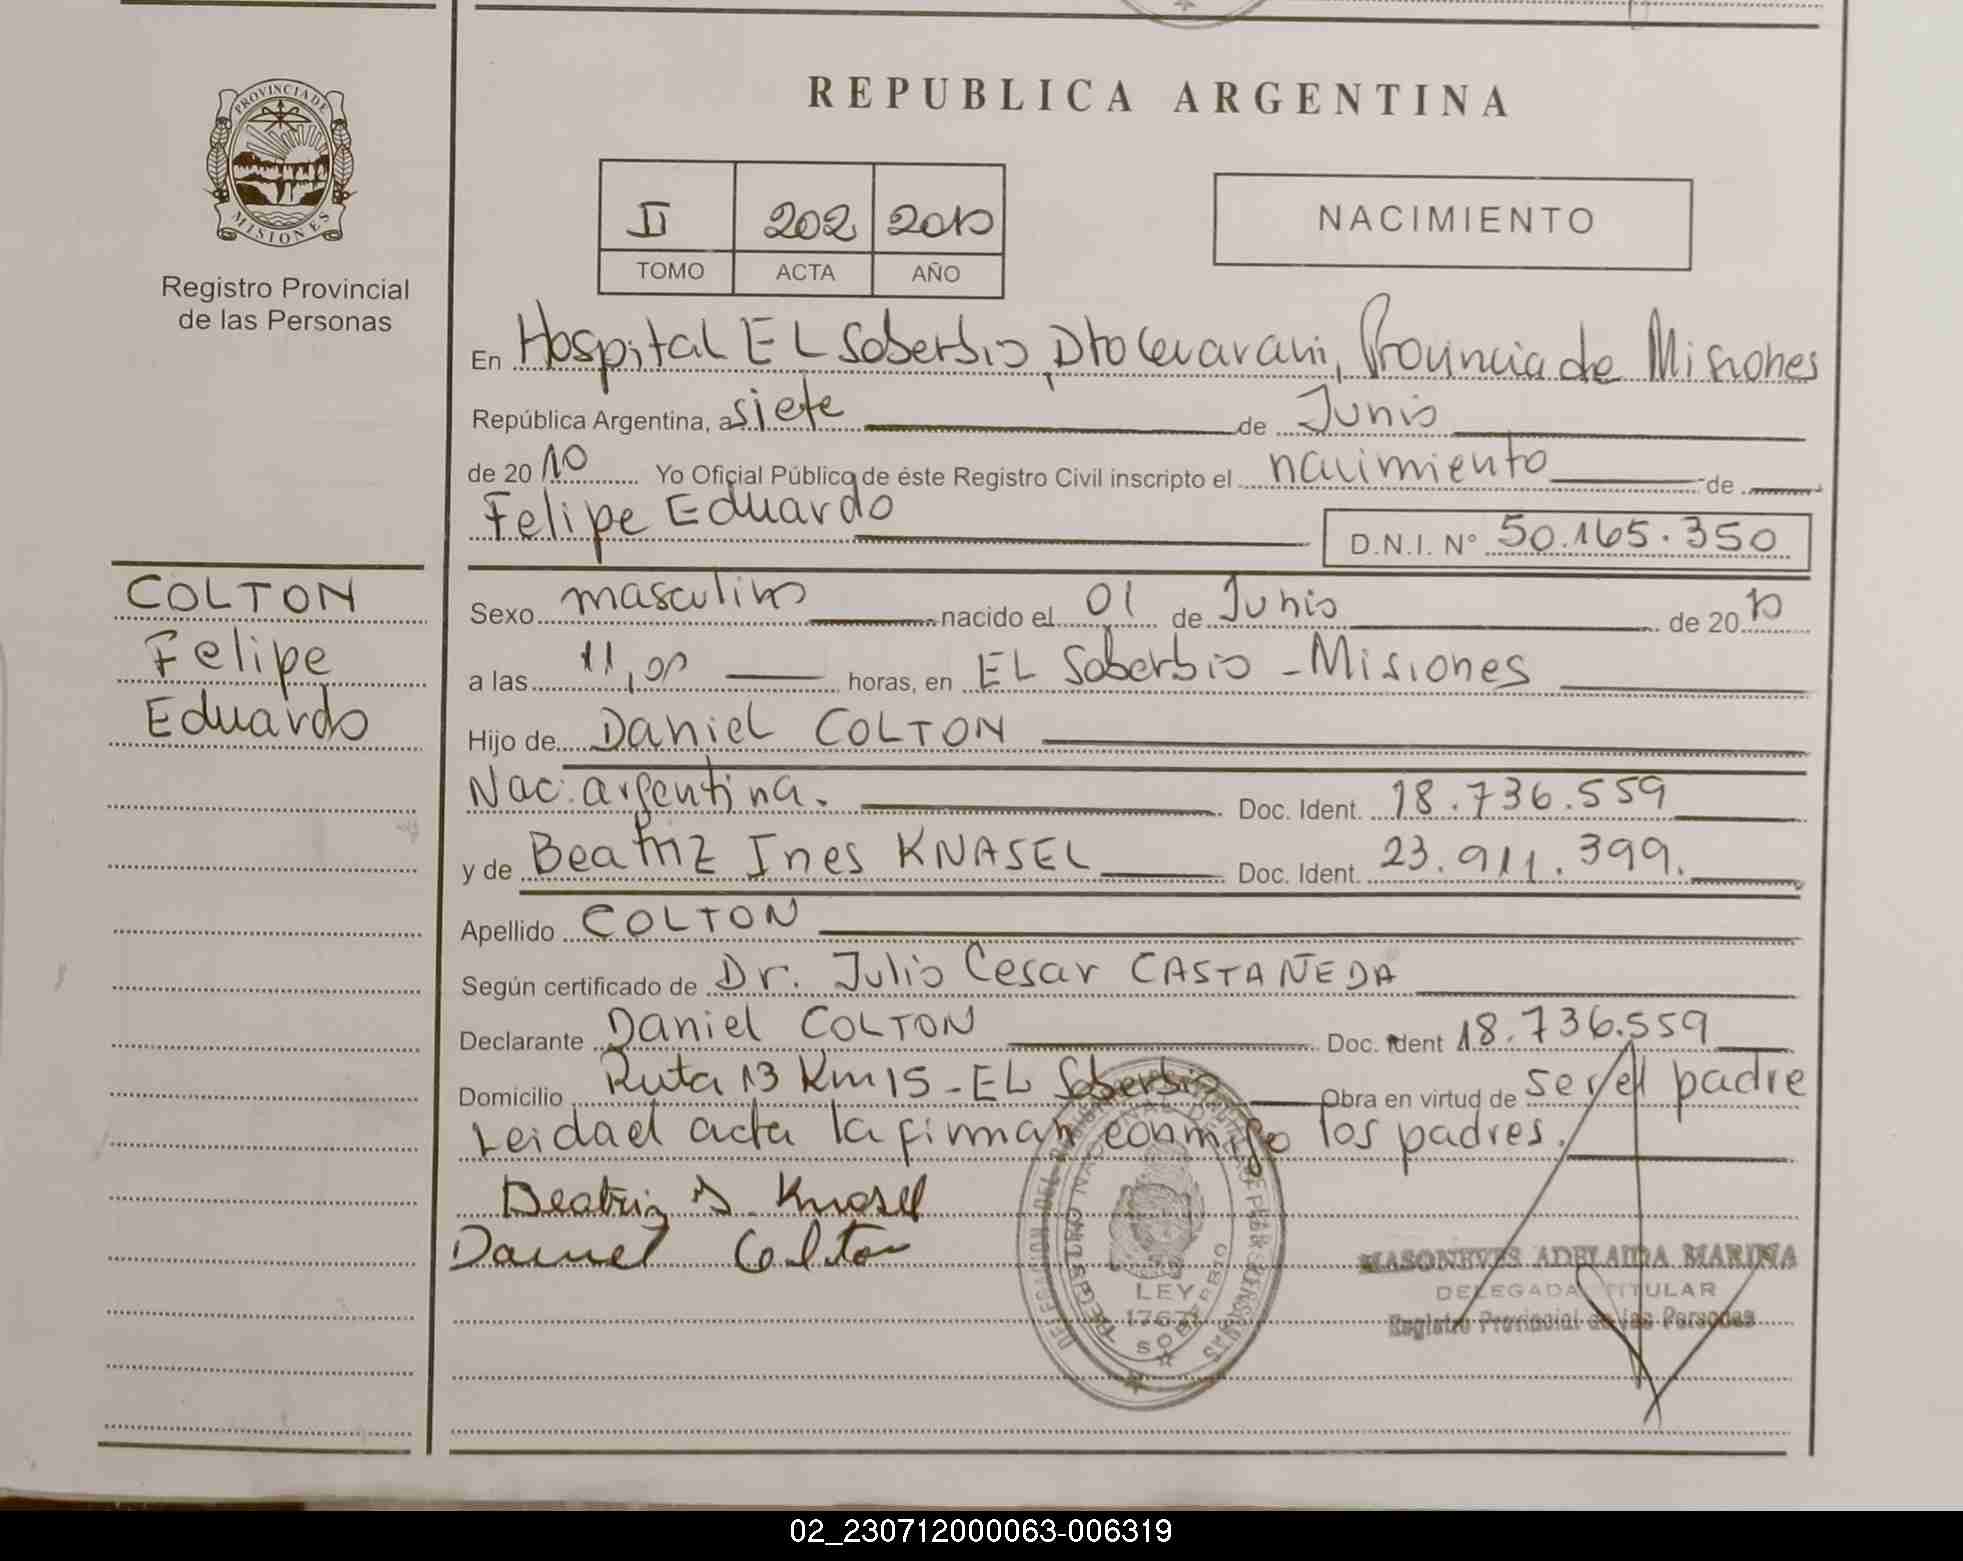 REPUBLICA ARGENTINA
PROVINCIA DE
MISIONES
Registro Provincial
de las Personas
II 202 2010
TOMO ACTA AÑO
NACIMIENTO
En Hospital EL Soberbio, Dto Guarani, Provincia de Misiones
República Argentina, a siete de Junio
de 2010 Yo Oficial Público de éste Registro Civil inscripto el nacimiento de
Felipe Eduardo D.N.I. Nº 50.165.350
COLTON
Felipe
Eduardo
Sexo masculino nacido el 01 de Junio de 2010
a las 11,00 horas, en EL Soberbio - Misiones
Hijo de Daniel COLTON
Nac: argentina. Doc. Ident. 18.736.559
y de Beatriz Ines KNASEL Doc. Ident. 23.911.399.
Apellido COLTON
Según certificado de Dr. Julio Cesar CASTAÑEDA
Declarante Daniel COLTON Doc. Ident 18.736.559
Domicilio Ruta 13 Km 15 - EL Soberbio Obra en virtud de ser el padre
Leida el acta la firman conmigo los padres.
Beatriz I. Knasel
Daniel Colton
LEY
SOBERBIO
MASONEVES ADELAIDA MARINA
DELEGADA TITULAR
Registro Provincial de las Personas
02_230712000063-006319